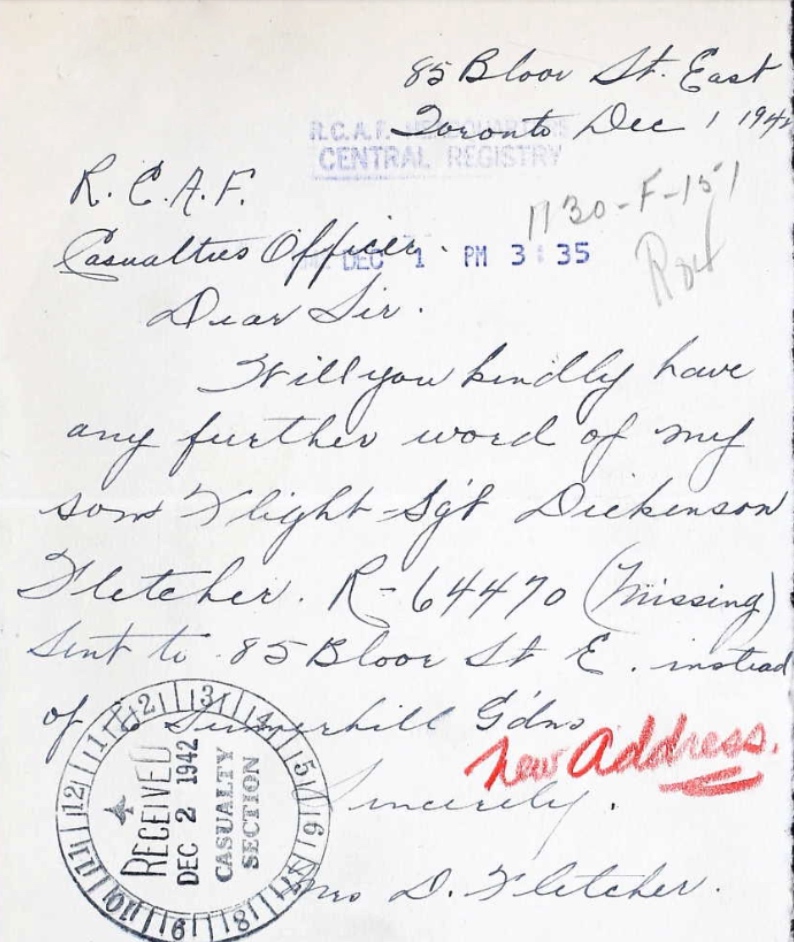 85 Bloor St. East
Toronto Dec 1 1942
R.C.A.F. HEADQUARTERS
CENTRAL REGISTRY
R.C.A.F.
1130-F-151
Casualties Officer.
DEC 1 PM 3:35
Dear Sir.
Will you kindly have
any further word of my
son Flight-Sgt Dickenson
Fletcher. R-64470 (Missing)
Sent to 85 Bloor St E. instead
of 6 Summerhill Gdns
New Address.
Sincerely.
Mrs D. Fletcher.
12 1 2 3 4 5 6 7 8 9 10 11
RECEIVED
DEC 2 1942
CASUALTY
SECTION